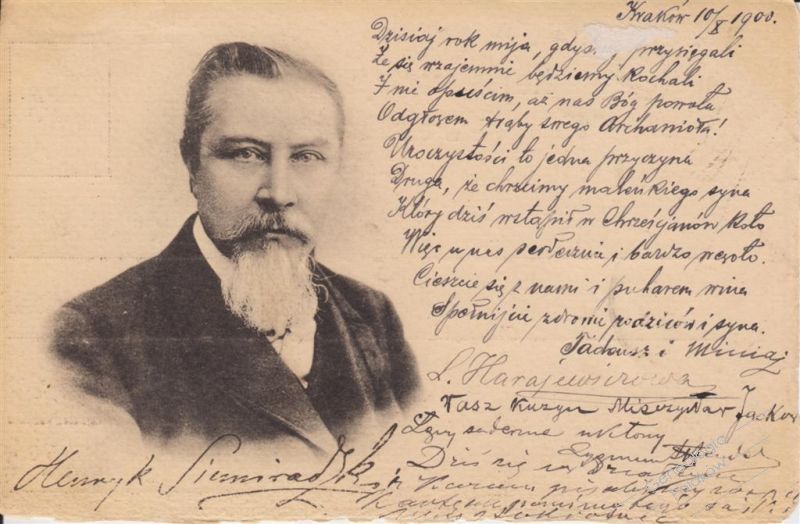 Kraków 10/X 1900.
Dzisiaj rok mija, gdyś przysięgali
Że się wzajemnie będziemy kochali
I nie opuścim, aż nas Bóg powoła
Odgłosem trąby swego Archanioła!
Uroczystości to jedna przyczyna
Druga, że chrzcimy maleńkiego syna
Który dziś wstąpił w Chrześcjanów koło
Więc u nas serdecznie i bardzo wesoło.
Cieszcie się z nami i puharem wina
Spełnijcie zdrowie rodziców i syna.
Tadeusz i
L. Harajewiczowa
Wasz Kuzyn Mieczysław
ukłony
Zygmunt
Dziś się
Henryk Siemiradzki